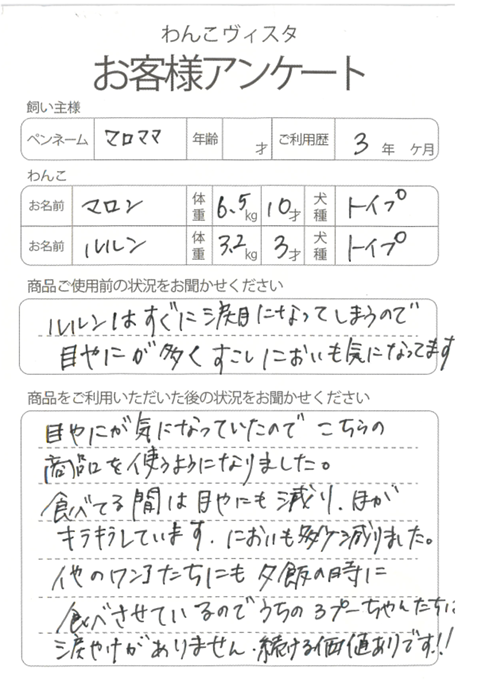 わんこヴィスタ
お客様アンケート
飼い主様
ペンネーム マロママ 年齢 才 ご利用歴 3 年 ケ月
わんこ
お名前 マロン 体重 6.5kg 10才 犬種 トイプ
お名前 ルルン 体重 3.2kg 3才 犬種 トイプ
商品ご使用前の状況をお聞かせください
ルルンはすぐに涙目になってしまうので
目やにが多くすこしにおいも気になってます
商品をご利用いただいた後の状況をお聞かせください
目やにが気になっていたので こちらの
商品を使うようになりました。
食べてる間は目やにも減り、
キラキラしています。においも 減りました。
他のワン子たちにも夕飯の時に
食べさせているのでうちの3プーちゃんたちに
涙やけがありません。続ける価値ありです!!